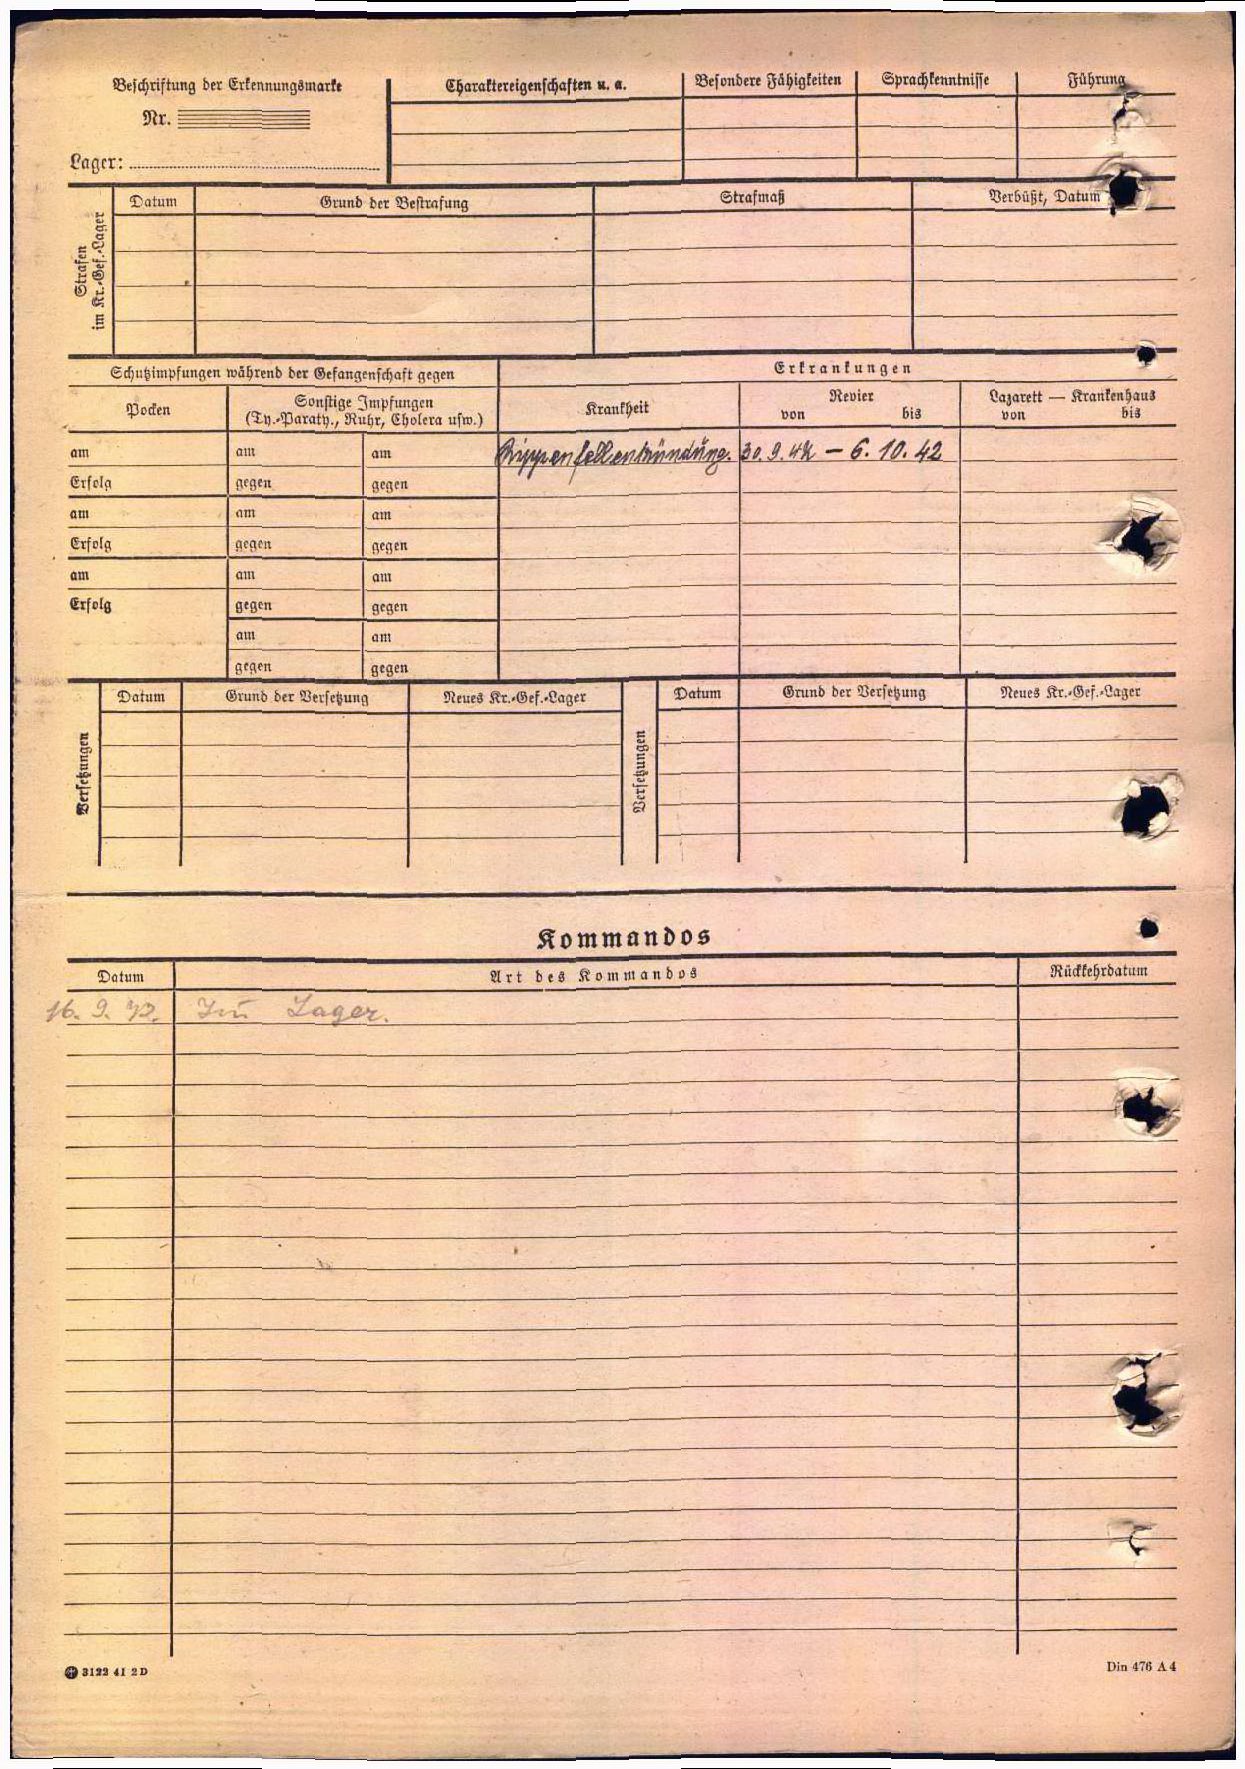 Beschriftung der Erkennungsmarke
Nr.
Lager:
Charaktereigenschaften u. a.
Besondere Fähigkeiten
Sprachkenntnisse
Führung
Strafen
im Kr.-Gef.-Lager
Datum
Grund der Bestrafung
Strafmaß
Verbüßt, Datum
Schutzimpfungen während der Gefangenschaft gegen
Erkrankungen
Pocken
Sonstige Impfungen
(Ty.-Paraty., Ruhr, Cholera usw.)
Krankheit
Revier
von bis
Lazarett — Krankenhaus
von bis
am am am Rippenfellentzündung. 30. 9. 42 – 6. 10. 42
Erfolg gegen gegen
am am am
Erfolg gegen gegen
am am am
Erfolg gegen gegen
am am
gegen gegen
Versetzungen
Datum Grund der Versetzung Neues Kr.-Gef.-Lager
Versetzungen
Datum Grund der Versetzung Neues Kr.-Gef.-Lager
Kommandos
Datum Art des Kommandos Rückkehrdatum
16. 9. 42. Im Lager.
3122 41 2 D
Din 476 A 4